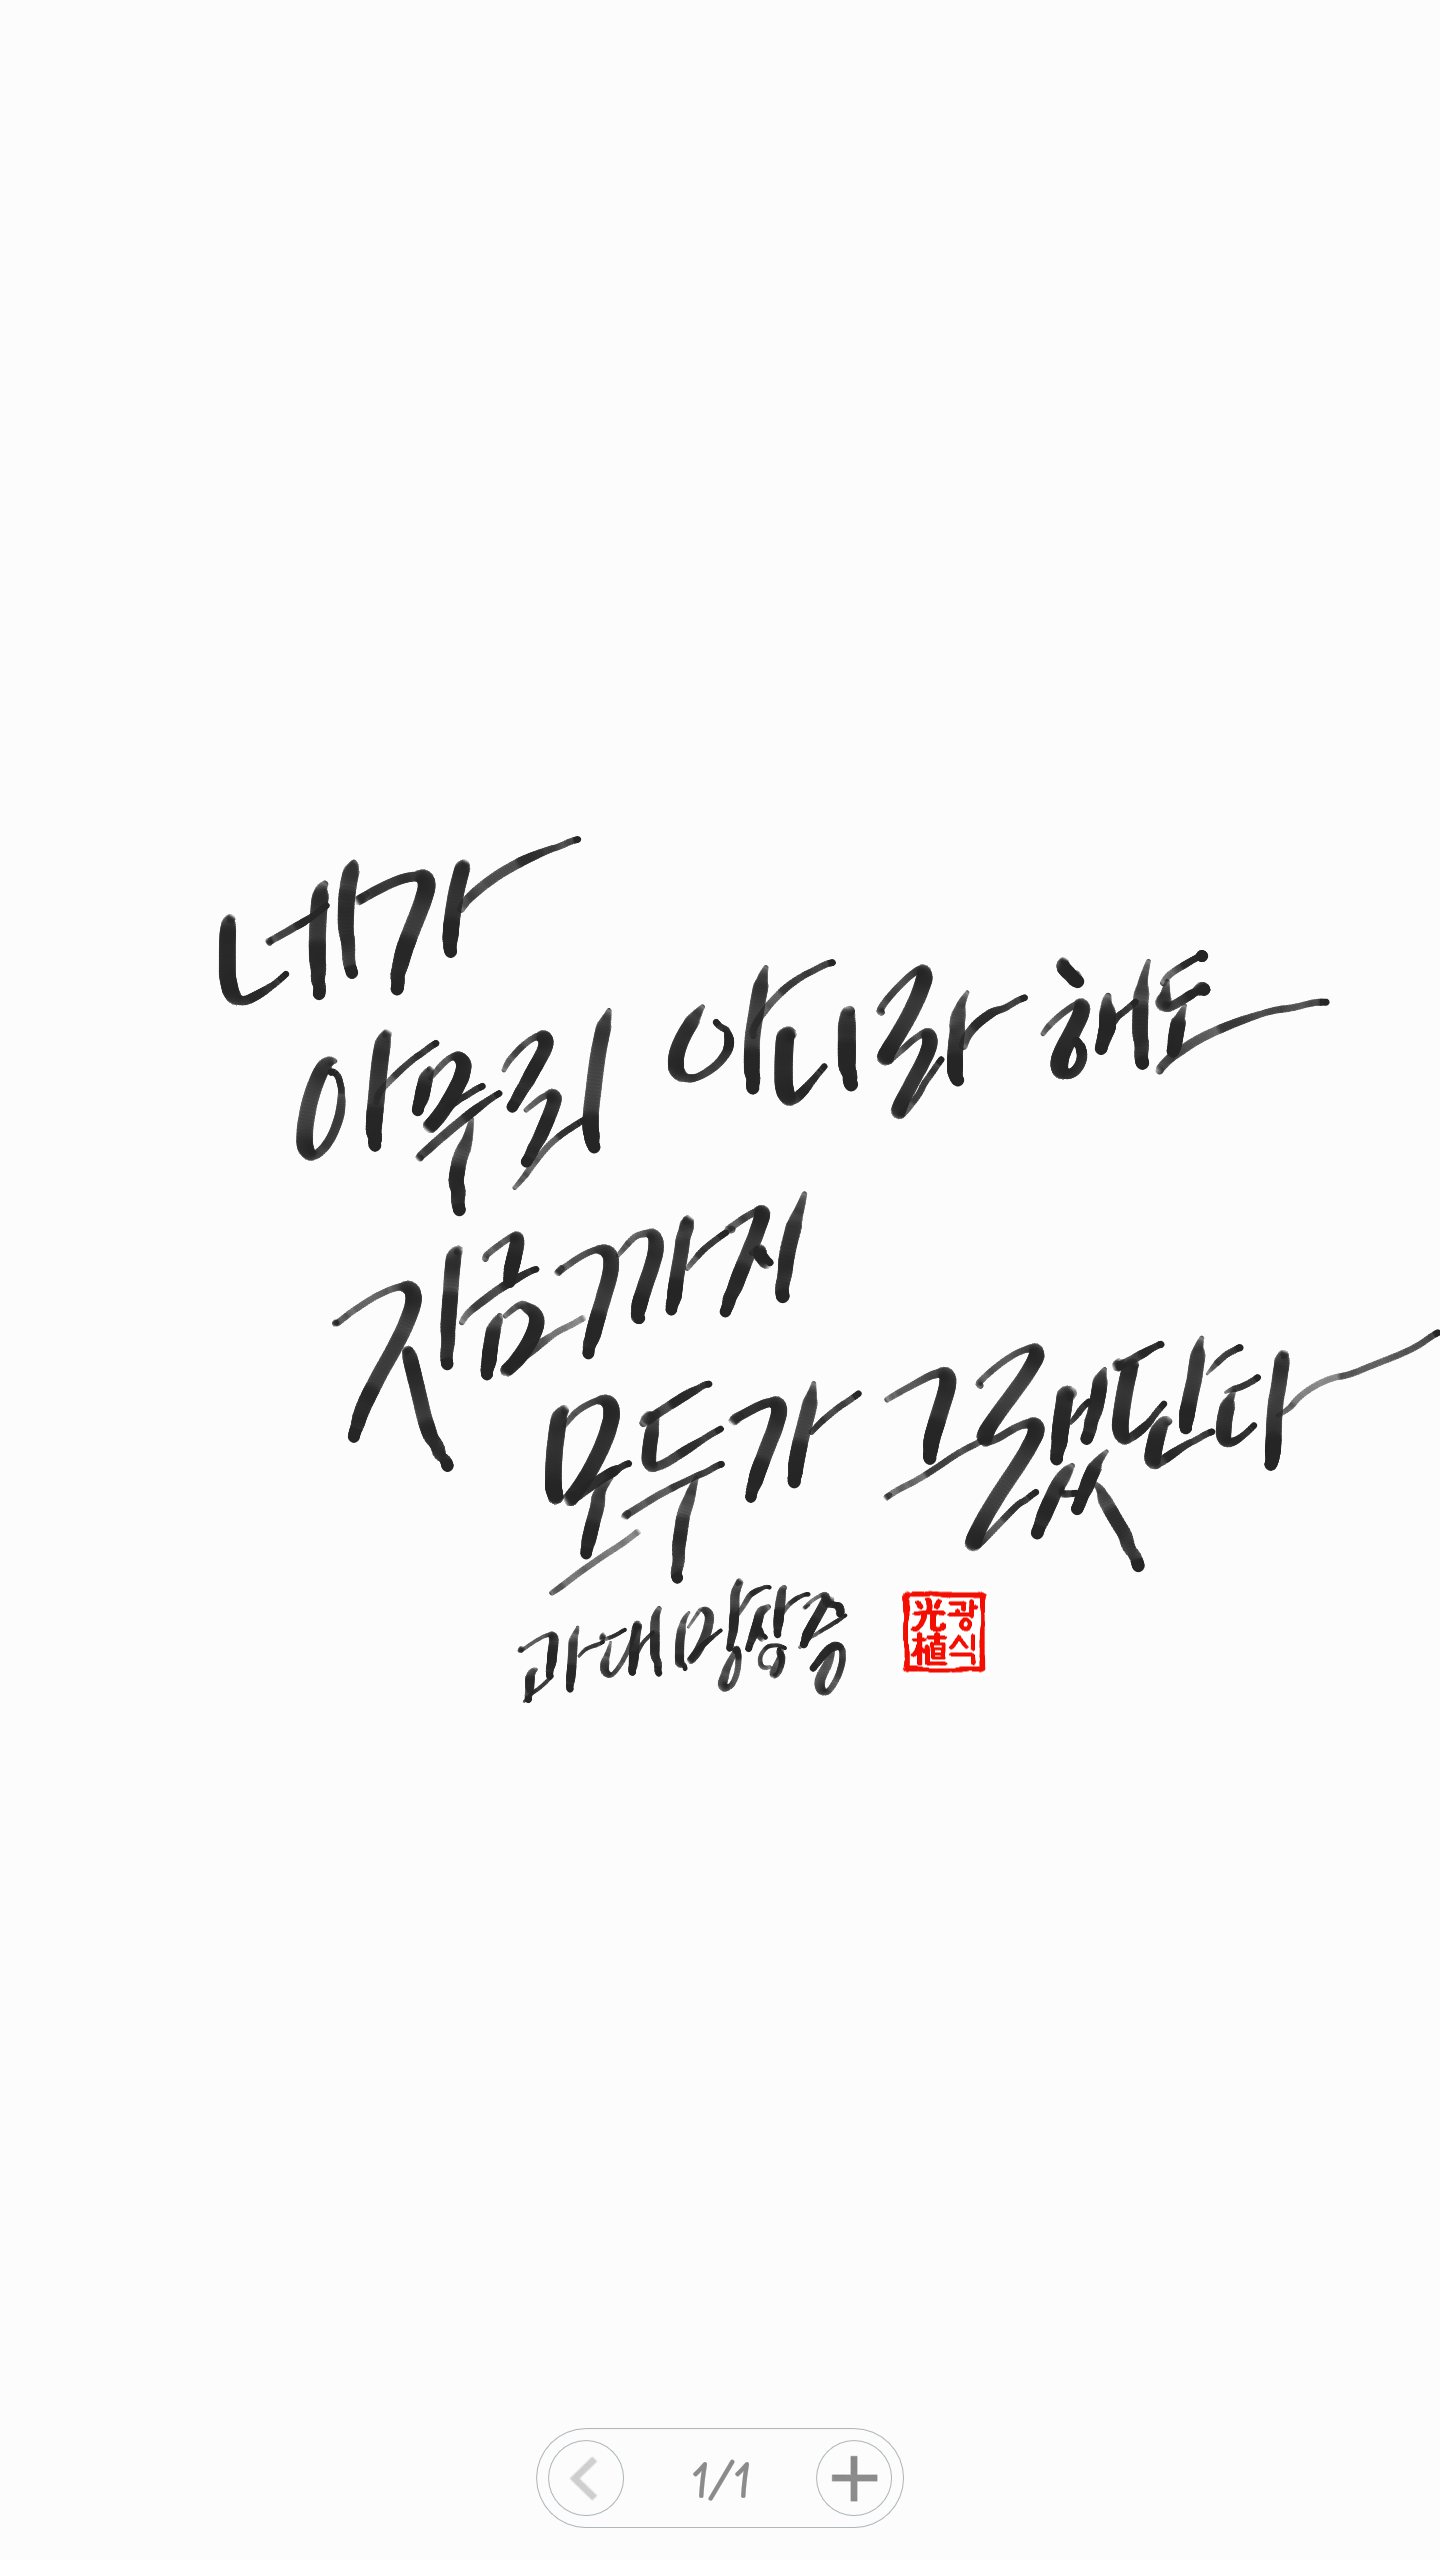 네가
아무리 아니라 해도
지금까지
모두가 그랬단다
과대망상증
光 광
植 식
1/1